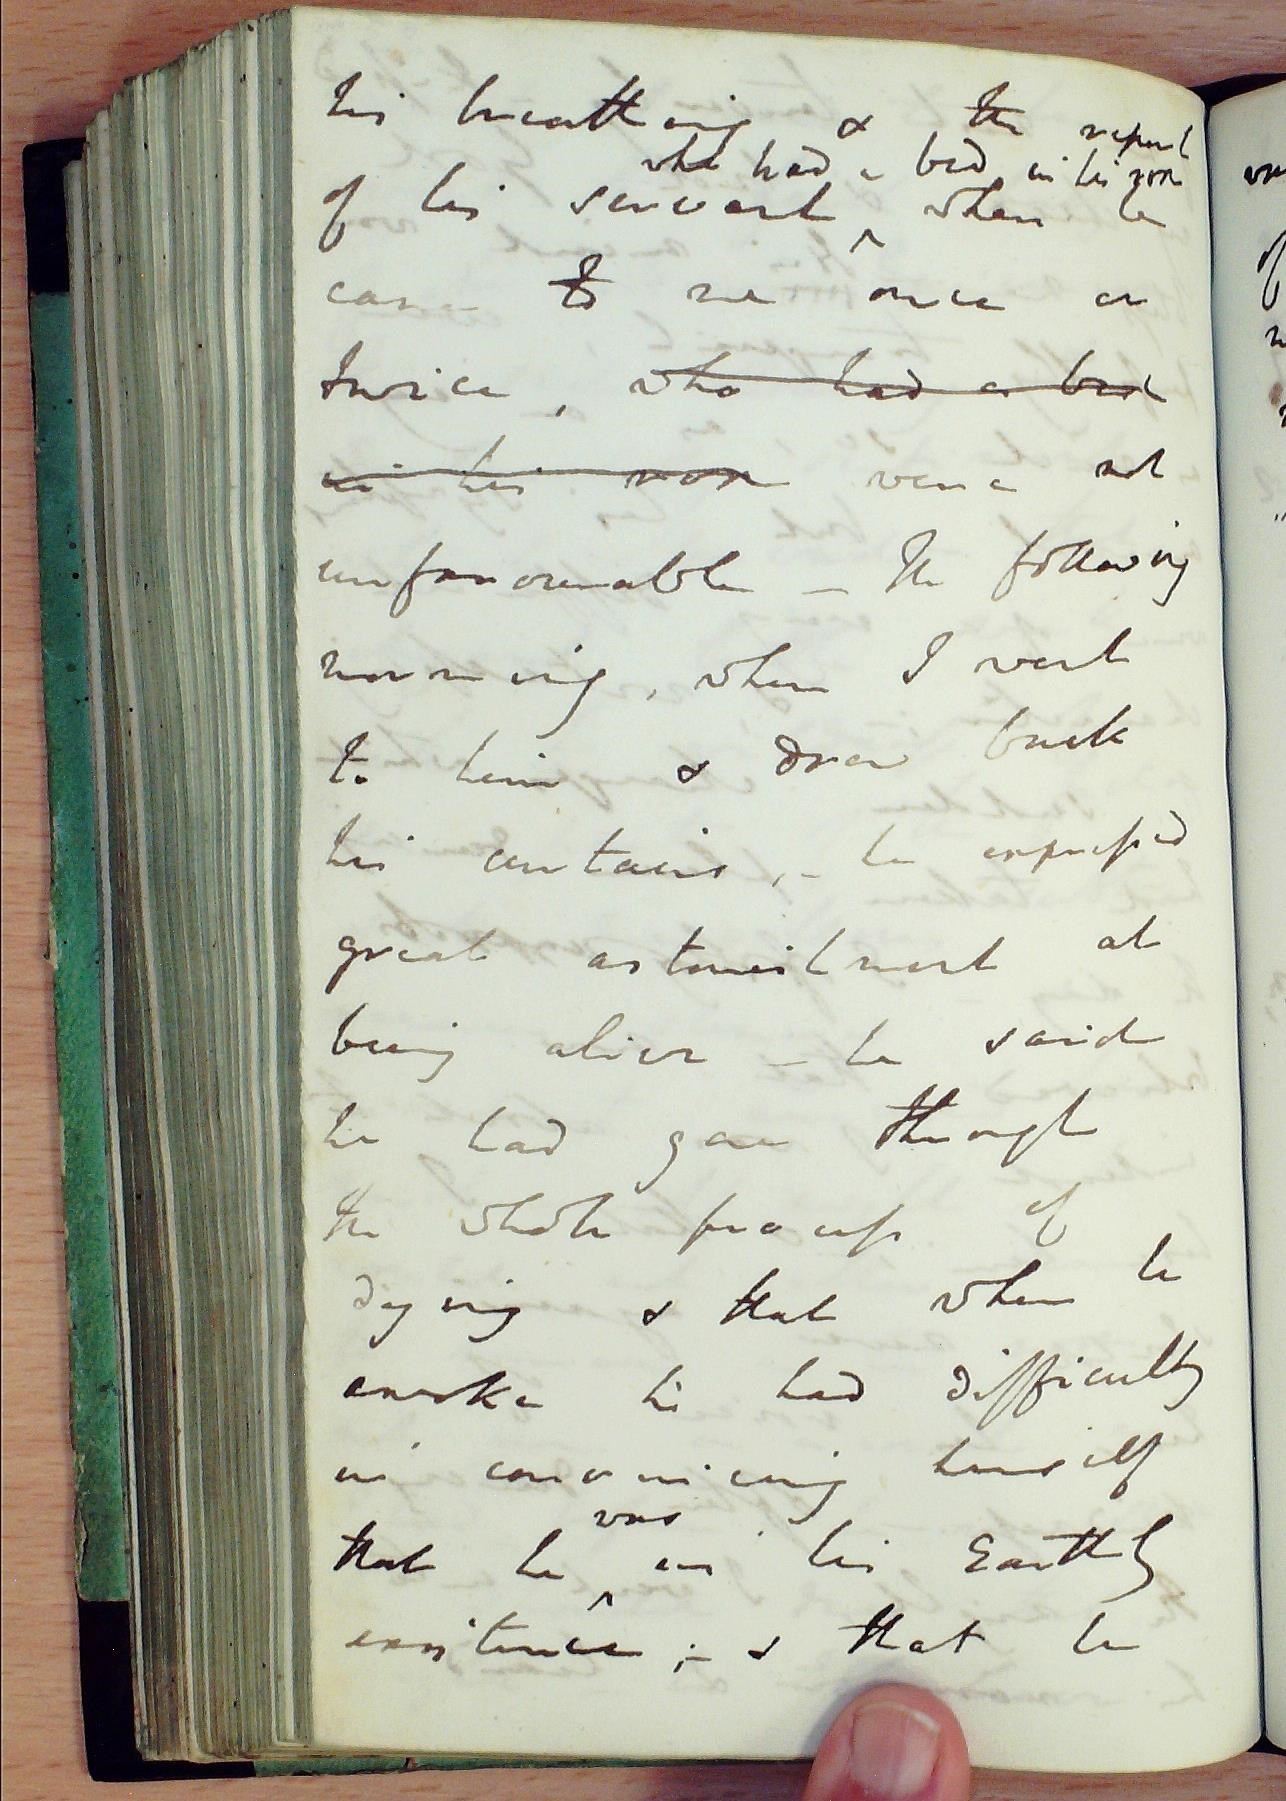 his breathing & the report
who had a bed in his room
of his servant ^ when he
came to me once or
twice, who had a bed
in his room were not
unfavourable – The following
morning, when I went
to him & drew back
his curtains, – he expressed
great astonishment at
being alive – he said
he had gone through
the whole process of
dying & that when he
awoke he had difficulty
in convincing himself
was
that he ^ in his Earthly
existence; – & that he